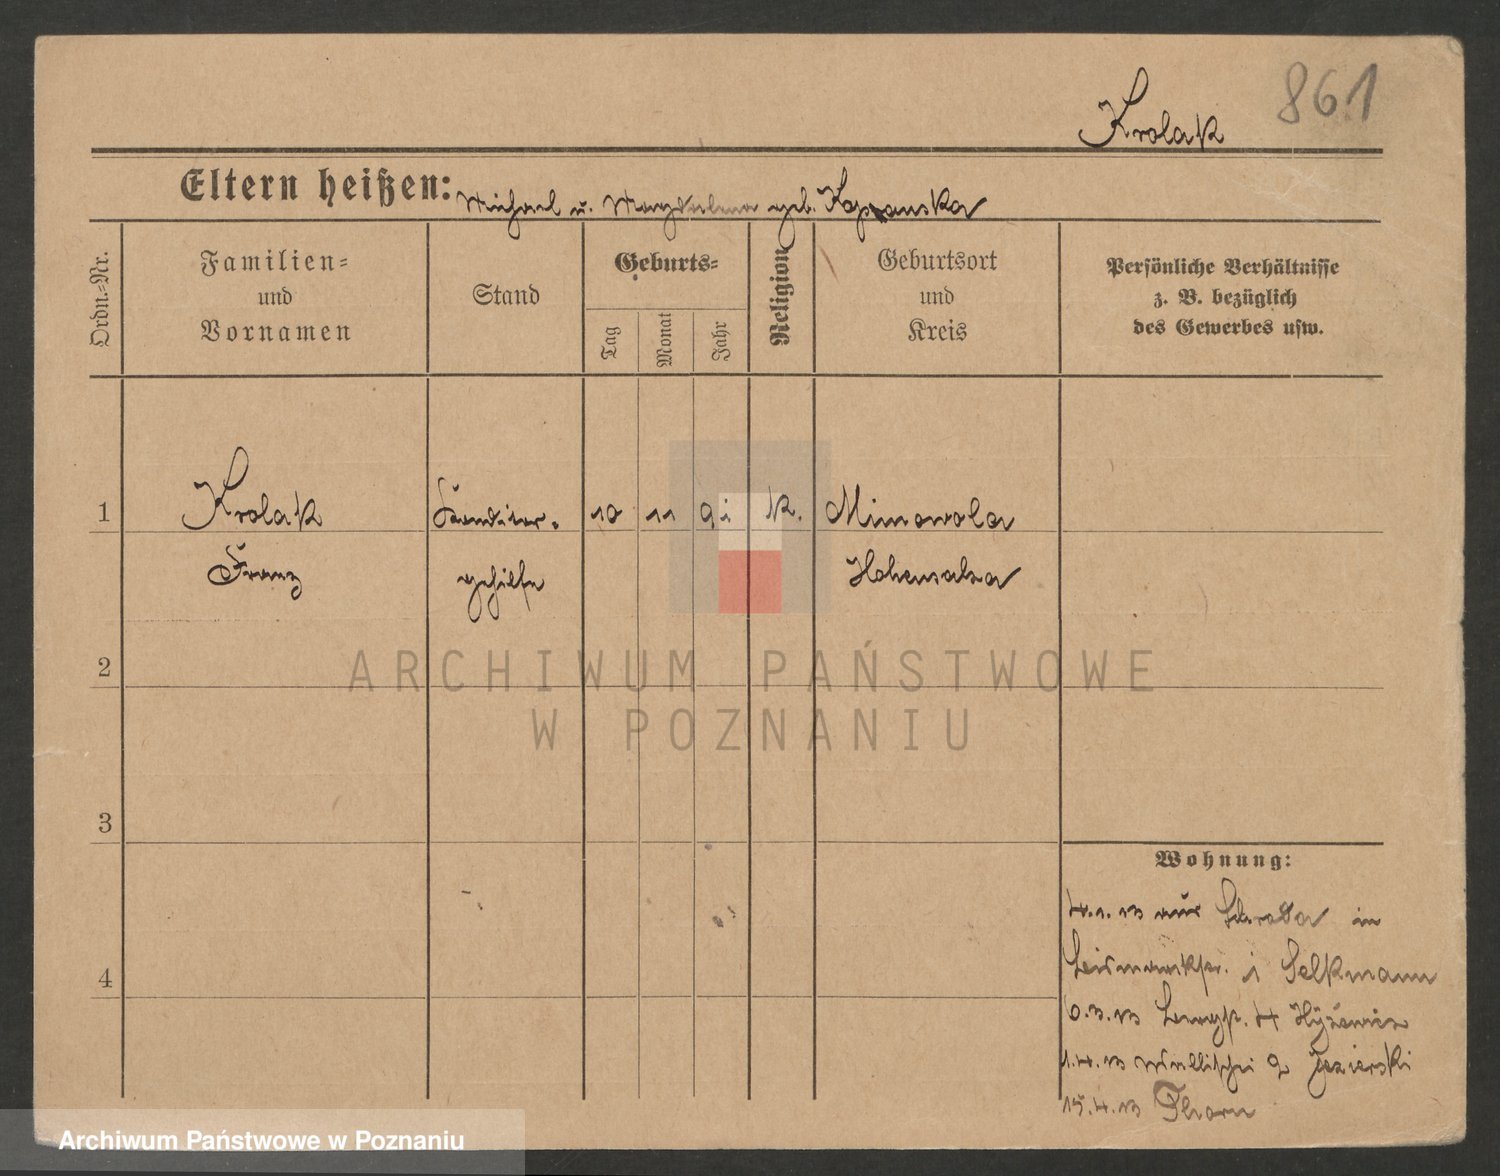 861
Krolak
Eltern heißen: Michael u. Magdalena geb. Kapranska
Ordn.-Nr.
Familien-
und
Vornamen
Stand
Geburts-
Tag
Monat
Jahr
Religion
Geburtsort
und
Kreis
Persönliche Verhältnisse
z. B. bezüglich
des Gewerbes usw.
1 Krolak Konditor- 10 11 91 K. Mimowola
Franz gehilfe Hohensalza
2
ARCHIWUM PAŃSTWOWE
W POZNANIU
3
Wohnung:
4.1.13 aus Schroda in
Bismarckstr. 1 Selkmann
4
6.3.13 Bergstr. 4 Hyżewicz
1.4.13 Wallischei 9 Jezierski
15.4.13 Thorn
Archiwum Państwowe w Poznaniu